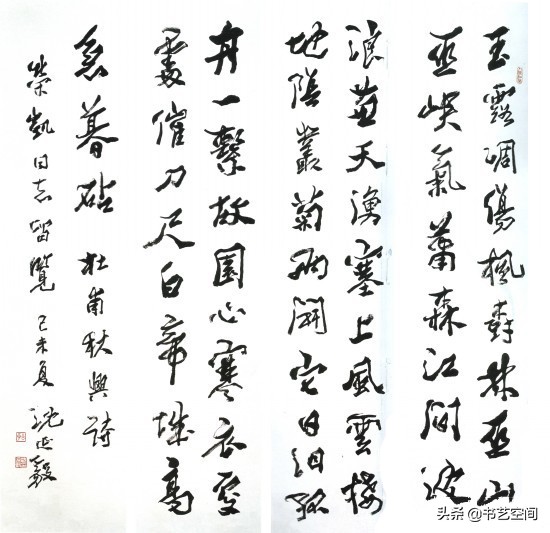 玉露凋傷楓樹林巫山
巫峽氣蕭森江間波
浪兼天湧塞上風雲接
地陰叢菊兩開它日泪孤
舟一繫故園心寒衣處
處催刀尺白帝城高
急暮砧 杜甫秋興詩
榮凱同志留覽 己未夏 沈延毅
头条 @书艺空间